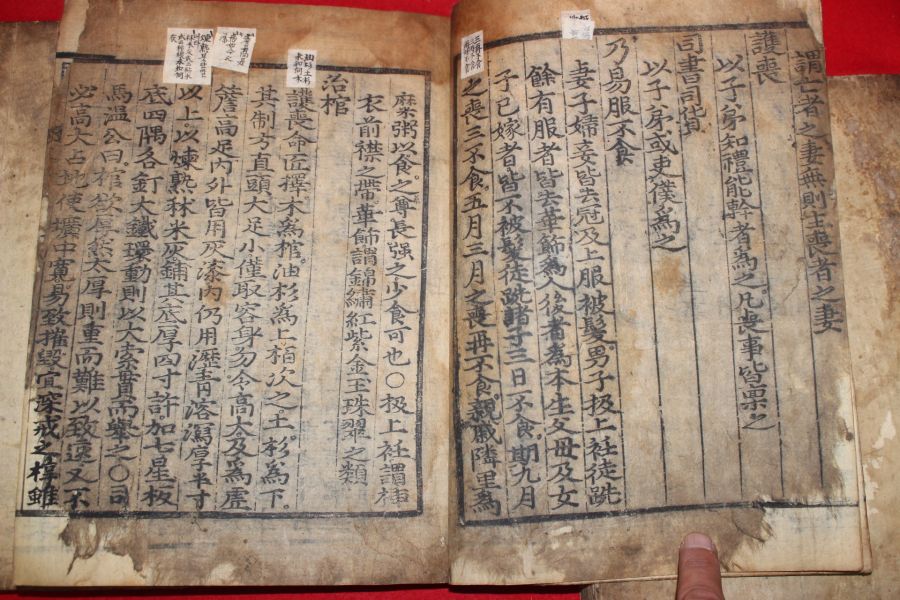 謂亡者之妻無則主喪者之妻
護喪
以子弟知禮能幹者為之凡喪事皆稟之
司書司貨
以子弟或吏僕為之
乃易服不食
妻子婦妾皆去冠及上服被髮男子扱上衽徒跣
餘有服者皆去華飾為人後者為本生父母及女
子已嫁者皆不被髮徒跣諸子三日不食期九月
之喪三不食五月三月之喪再不食親戚隣里為
糜粥以食之尊長强之少食可也○扱上衽謂揷
衣前襟之帶華飾謂錦繡紅紫金玉珠翠之類
治棺
護喪命匠擇木為棺油杉為上栢次之土杉為下
其制方直頭大足小僅取容身勿令高大及爲虛
簷高足內外皆用灰漆內仍用瀝青溶瀉厚半寸
以上以煉熟秫米灰鋪其底厚四寸許加七星板
底四隅各釘大鐵環動則以大索貫而舉之○司
馬温公曰棺欲厚然太厚則重而難以致遠又不
必高大占地使壙中寬易致摧毀宜深戒之椁雖